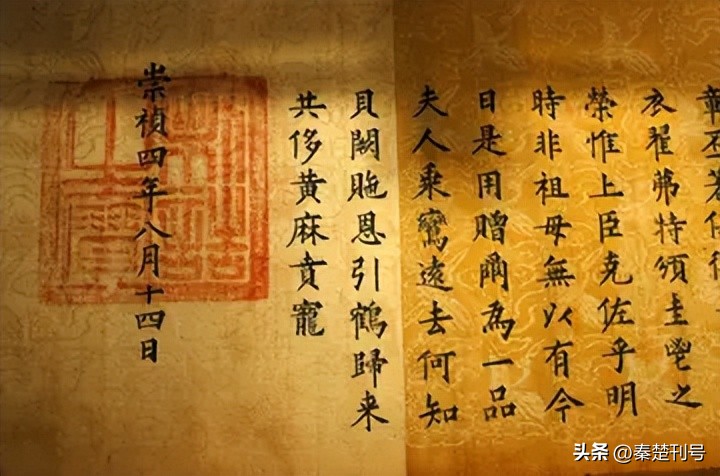 衣翟茀特頒圭鬯之
榮惟上臣克佐乎明
時非祖母無以有今
日是用贈爾為一品
夫人乘鸞遠去何知
貝闕貤恩引鶴歸来
共侈黄麻賁寵
崇禎四年八月十四日
制誥之寶
头条 @秦楚刊号